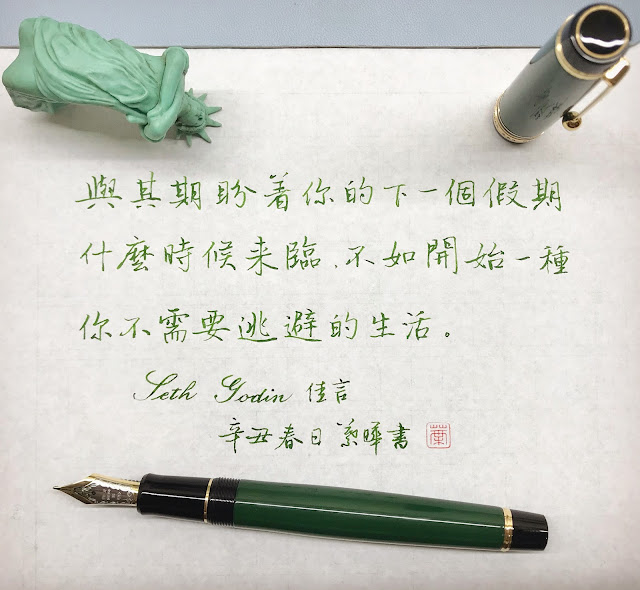 與其期盼着你的下一個假期
什麼時候来臨、不如開始一種
你不需要逃避的生活。
Seth Godin 佳言
辛丑春日 書
葉